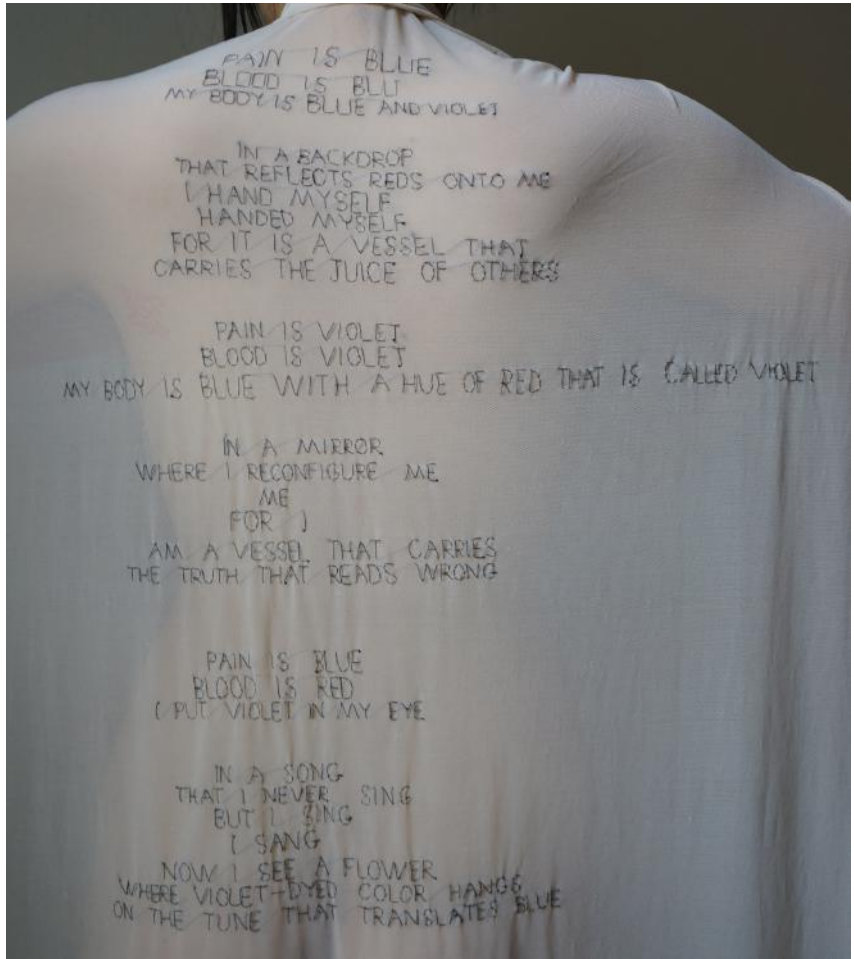 PAIN IS BLUE
BLOOD IS BLU
MY BODY IS BLUE AND VIOLET
IN A BACKDROP
THAT REFLECTS REDS ONTO ME
I HAND MYSELF
HANDED MYSELF
FOR IT IS A VESSEL THAT
CARRIES THE JUICE OF OTHERS
PAIN IS VIOLET
BLOOD IS VIOLET
MY BODY IS BLUE WITH A HUE OF RED THAT IS CALLED VIOLET
IN A MIRROR
WHERE I RECONFIGURE ME
ME
FOR I
AM A VESSEL THAT CARRIES
THE TRUTH THAT READS WRONG
PAIN IS BLUE
BLOOD IS RED
I PUT VIOLET IN MY EYE
IN A SONG
THAT I NEVER SING
BUT I SING
I SANG
NOW I SEE A FLOWER
WHERE VIOLET-DYED COLOR HANGS
ON THE TUNE THAT TRANSLATES BLUE